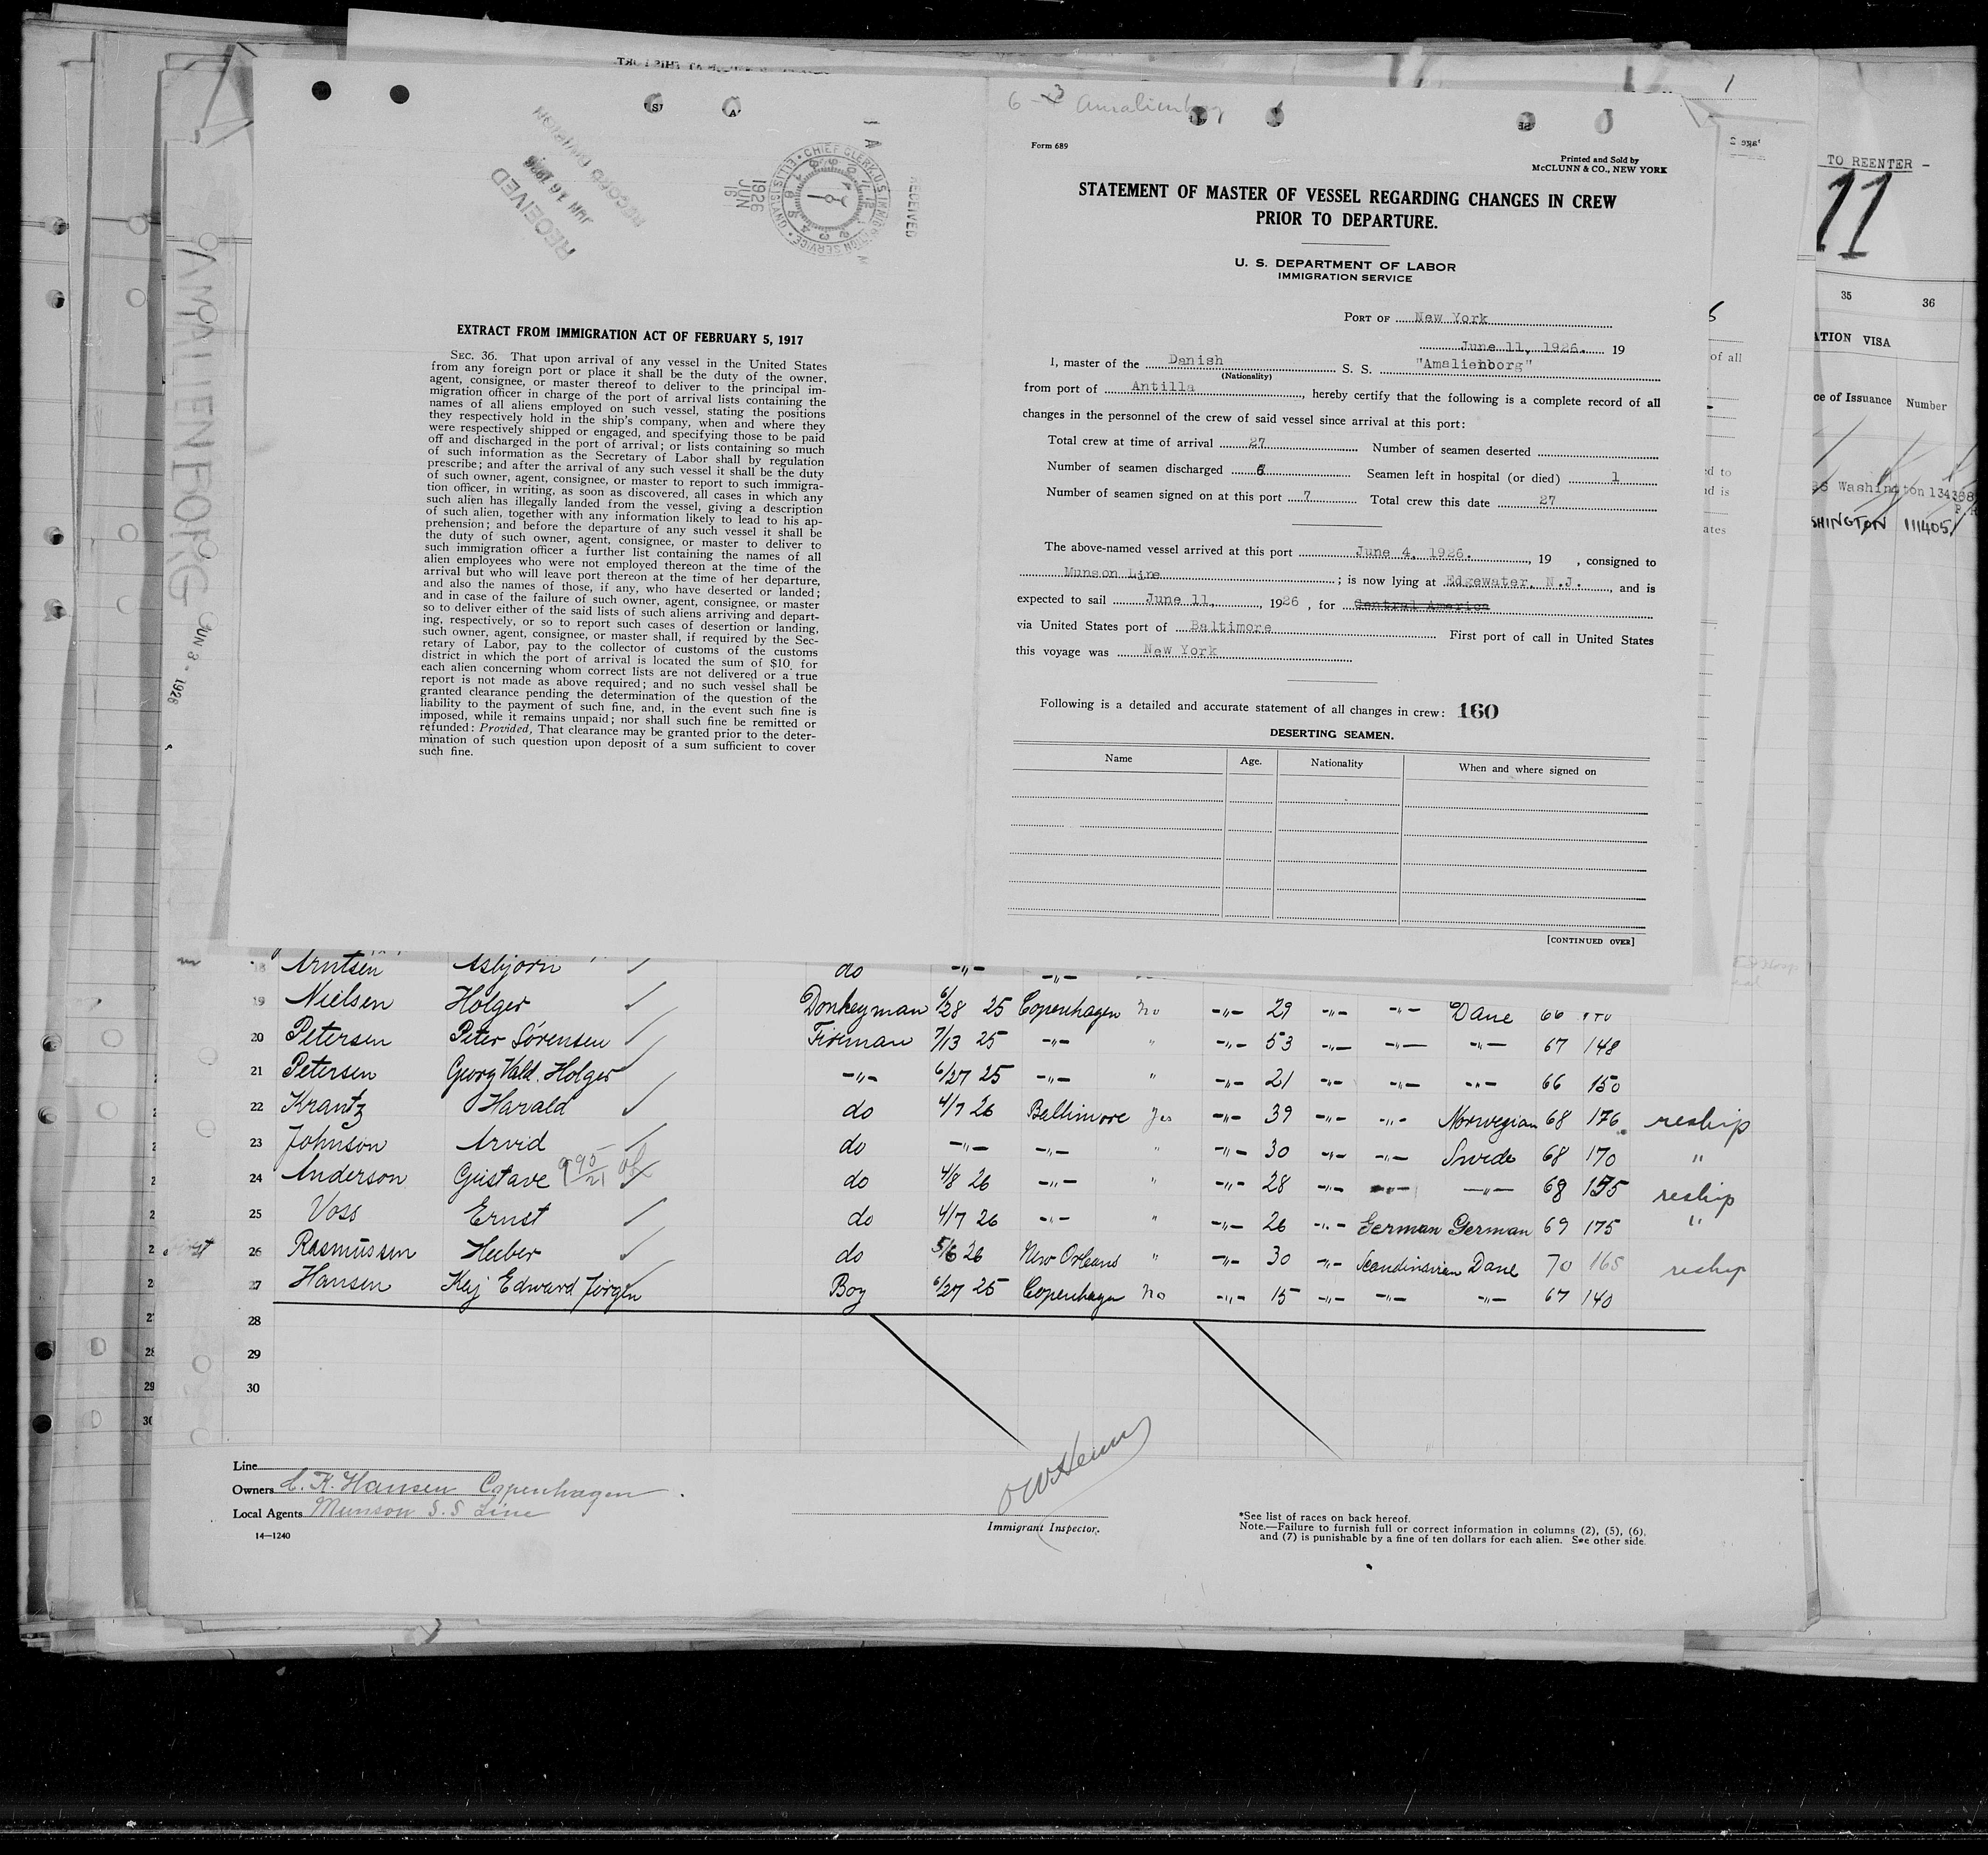 RECEIVED
JUN 16 1926
RECORD DIVISION
RECEIVED
1926 JUN 16
CHIEF CLERK U.S. IMMIGRATION SERVICE · ELLIS ISLAND
EXTRACT FROM IMMIGRATION ACT OF FEBRUARY 5, 1917
SEC. 36. That upon arrival of any vessel in the United States
from any foreign port or place it shall be the duty of the owner,
agent, consignee, or master thereof to deliver to the principal im-
migration officer in charge of the port of arrival lists containing the
names of all aliens employed on such vessel, stating the positions
they respectively hold in the ship's company, when and where they
were respectively shipped or engaged, and specifying those to be paid
off and discharged in the port of arrival; or lists containing so much
of such information as the Secretary of Labor shall by regulation
prescribe; and after the arrival of any such vessel it shall be the duty
of such owner, agent, consignee, or master to report to such immigra-
tion officer, in writing, as soon as discovered, all cases in which any
such alien has illegally landed from the vessel, giving a description
of such alien, together with any information likely to lead to his ap-
prehension; and before the departure of any such vessel it shall be
the duty of such owner, agent, consignee, or master to deliver to
such immigration officer a further list containing the names of all
alien employees who were not employed thereon at the time of the
arrival but who will leave port thereon at the time of her departure,
and also the names of those, if any, who have deserted or landed;
and in case of the failure of such owner, agent, consignee, or master
so to deliver either of the said lists of such aliens arriving and depart-
ing, respectively, or so to report such cases of desertion or landing,
such owner, agent, consignee, or master shall, if required by the Sec-
retary of Labor, pay to the collector of customs of the customs
district in which the port of arrival is located the sum of $10 for
each alien concerning whom correct lists are not delivered or a true
report is not made as above required; and no such vessel shall be
granted clearance pending the determination of the question of the
liability to the payment of such fine, and, in the event such fine is
imposed, while it remains unpaid; nor shall such fine be remitted or
refunded: Provided, That clearance may be granted prior to the deter-
mination of such question upon deposit of a sum sufficient to cover
such fine.
AMALIENBORG JUN 3 - 1926
6-3 Amalienborg
Form 689
Printed and Sold by
McCLUNN & CO., NEW YORK
STATEMENT OF MASTER OF VESSEL REGARDING CHANGES IN CREW
PRIOR TO DEPARTURE.
U. S. DEPARTMENT OF LABOR
IMMIGRATION SERVICE
PORT OF New York
June 11, 1926. 19
I, master of the Danish S. S. "Amalienborg"
(Nationality)
from port of Antilla, hereby certify that the following is a complete record of all
changes in the personnel of the crew of said vessel since arrival at this port:
Total crew at time of arrival 27 Number of seamen deserted
Number of seamen discharged 6 Seamen left in hospital (or died) 1
Number of seamen signed on at this port 7 Total crew this date 27
The above-named vessel arrived at this port June 4, 1926., 19 , consigned to
Munson Line ; is now lying at Edgewater, N.J., and is
expected to sail June 11, , 1926 , for Central America
via United States port of Baltimore First port of call in United States
this voyage was New York
Following is a detailed and accurate statement of all changes in crew: 160
DESERTING SEAMEN.
Name Age. Nationality When and where signed on
[CONTINUED OVER]
TO REENTER -
11
35 36
ATION VISA
ce of Issuance Number
Washington 134398
SHINGTON 111405
of all
18 Arntsen Asbjorn do -"- -"-
19 Nielsen Holger Donkeyman 6/28 25 Copenhagen no -"- 29 -"- -"- Dane 66 170
20 Petersen Peter Sörensen Fireman 7/13 25 -"- " -"- 53 -"- -"- -"- 67 148
21 Petersen Georg Vald. Holger -"- 6/27 25 -"- " -"- 21 -"- -"- -"- 66 150
22 Krantz Harald do 4/7 26 Baltimore yes -"- 39 -"- -"- Norwegian 68 176 reship
23 Johnson Arvid do -"- -"- " -"- 30 -"- -"- Swede 68 170 "
24 Anderson Gustave do 4/8 26 -"- " -"- 28 -"- -"- -"- 68 155 reship
25 Voss Ernst do 4/7 26 -"- " -"- 26 -"- German German 69 175 "
26 Rasmussen Heeber do 5/6 26 New Orleans " -"- 30 -"- Scandinavien Dane 70 165 reship
27 Hansen Kaj Edward Jörgen Boy 6/27 25 Copenhagen no -"- 15 -"- -"- -"- 67 140
28
29
30
Line
Owners C. K. Hansen Copenhagen.
Local Agents Munson S.S Line
14—1240
Immigrant Inspector.
*See list of races on back hereof.
Note.—Failure to furnish full or correct information in columns (2), (5), (6),
and (7) is punishable by a fine of ten dollars for each alien. See other side.